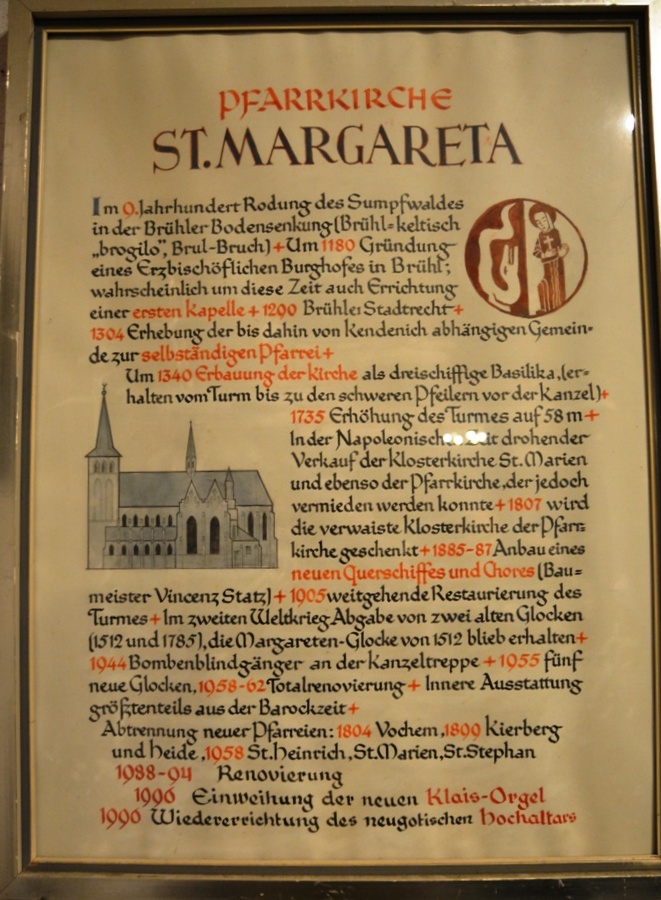 PFARRKIRCHE
ST. MARGARETA
Im 9. Jahrhundert Rodung des Sumpfwaldes
in der Brühler Bodensenkung (Brühl=keltisch
„brogilo”, Brul-Bruch) + Um 1180 Gründung
eines Erzbischöflichen Burghofes in Brühl;
wahrscheinlich um diese Zeit auch Errichtung
einer ersten Kapelle + 1200 Brühler Stadtrecht +
1304 Erhebung der bis dahin von Kendenich abhängigen Gemein-
de zur selbständigen Pfarrei +
Um 1340 Erbauung der Kirche als dreischiffige Basilika, (er-
halten vom Turm bis zu den schweren Pfeilern vor der Kanzel) +
1735 Erhöhung des Turmes auf 58 m +
In der Napoleonischen Zeit drohender
Verkauf der Klosterkirche St. Marien
und ebenso der Pfarrkirche, der jedoch
vermieden werden konnte + 1807 wird
die verwaiste Klosterkirche der Pfarr=
kirche geschenkt + 1885-87 Anbau eines
neuen Querschiffes und Chores (Bau=
meister Vincenz Statz) + 1905 weitgehende Restaurierung des
Turmes + Im zweiten Weltkrieg Abgabe von zwei alten Glocken
(1512 und 1785), die Margareten-Glocke von 1512 blieb erhalten +
1944 Bombenblindgänger an der Kanzeltreppe + 1955 fünf
neue Glocken, 1958-62 Totalrenovierung + Innere Ausstattung
größtenteils aus der Barockzeit +
Abtrennung neuer Pfarreien: 1804 Vochem, 1899 Kierberg
und Heide, 1958 St. Heinrich, St. Marien, St. Stephan
1988-94 Renovierung
1996 Einweihung der neuen Klais-Orgel
1996 Wiedererrichtung des neugotischen Hochaltars